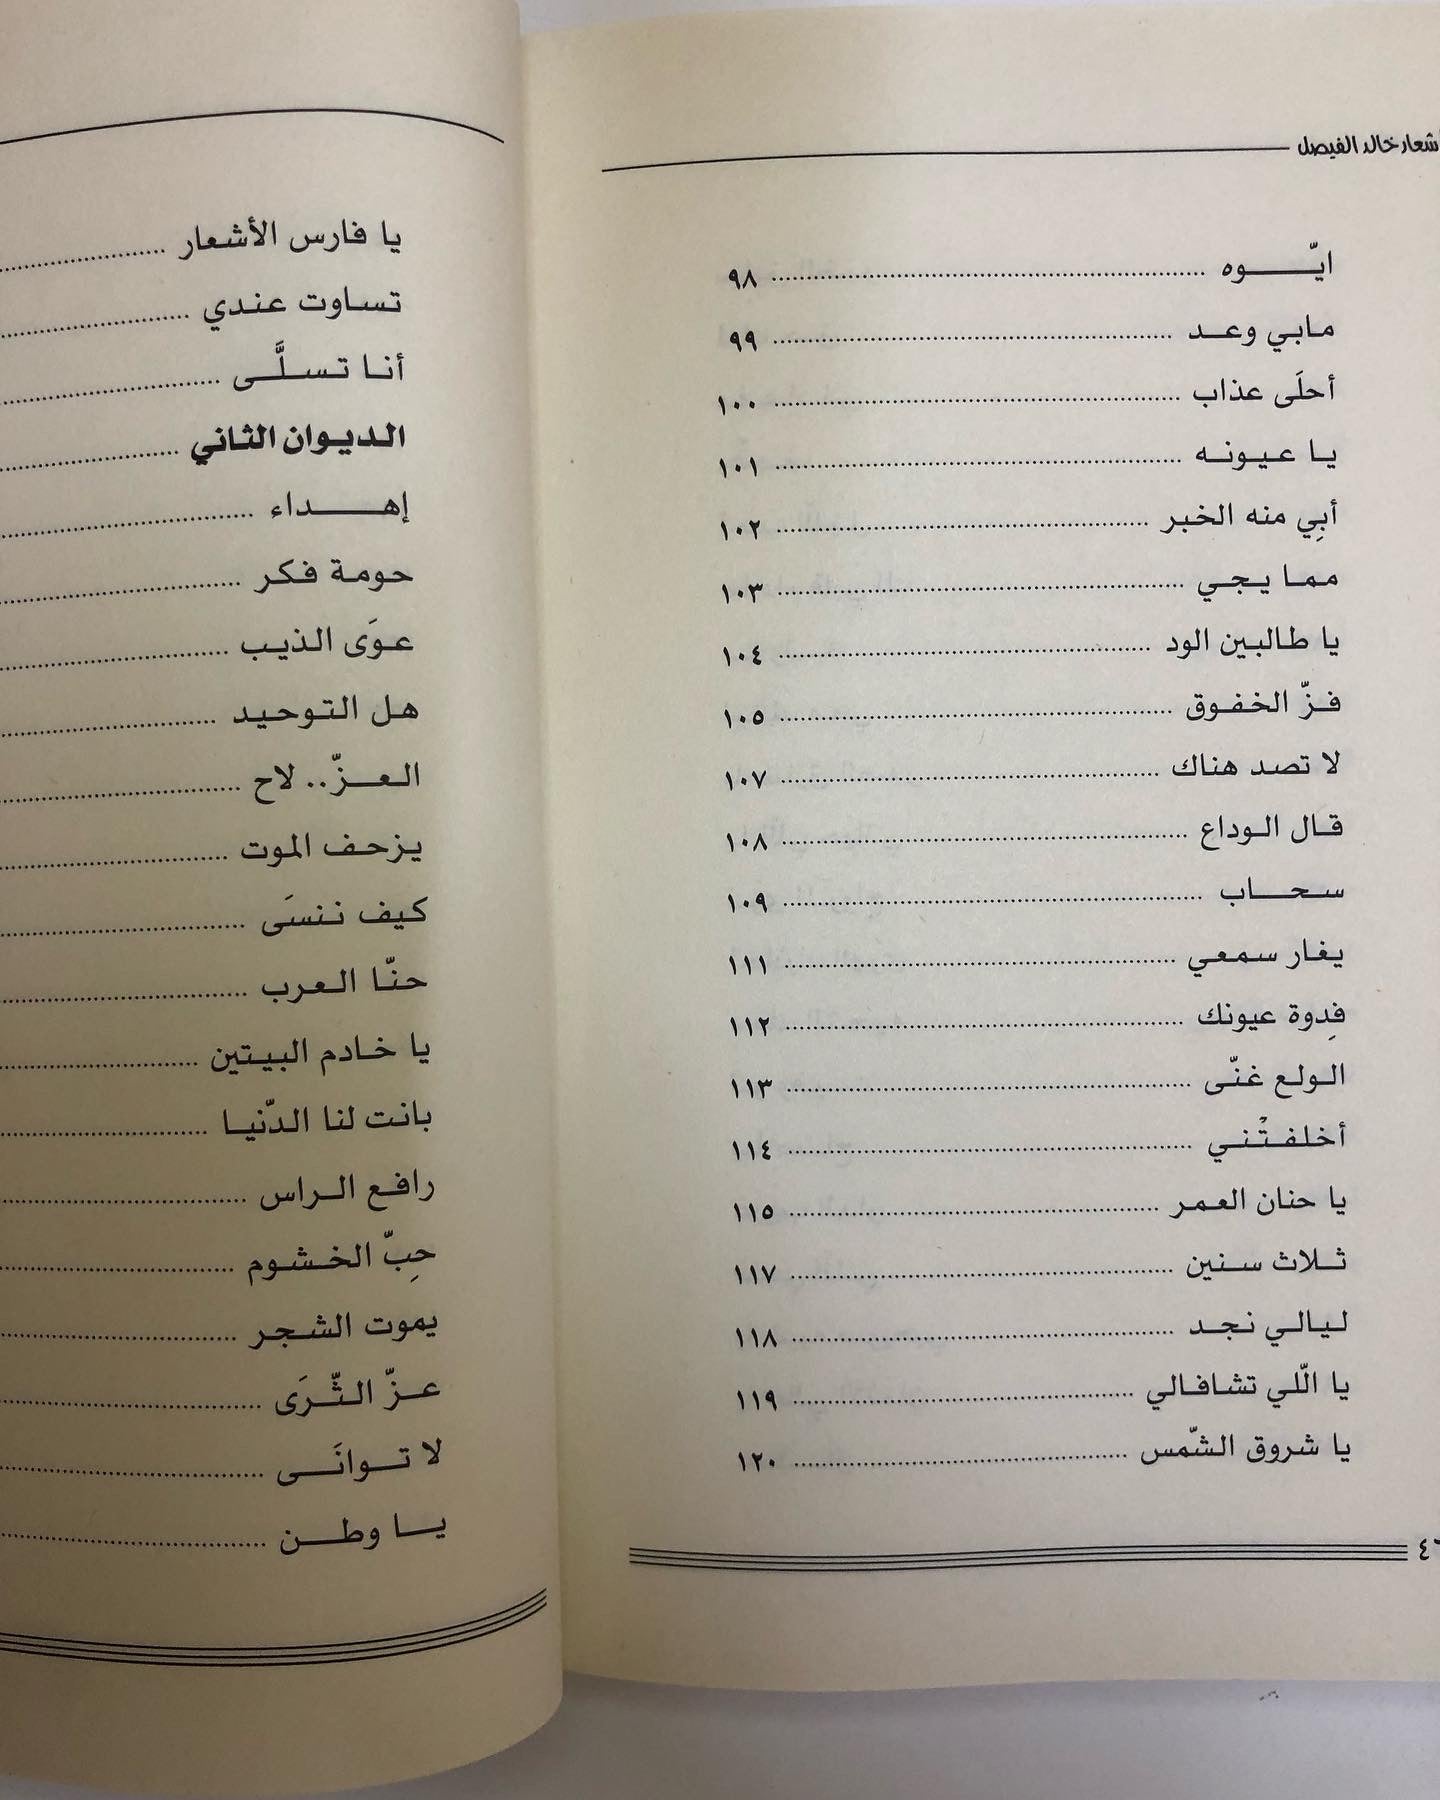 أشعار خالد الفيصل
ايّــــوه ........ ٩٨
مابي وعـد ........ ٩٩
أحلَى عذاب ........ ١٠٠
يـا عـيـونـه ........ ١٠١
أبِي منه الخبر ........ ١٠٢
ممـا يـجـي ........ ١٠٣
يا طالبين الود ........ ١٠٤
فـزّ الخفوق ........ ١٠٥
لا تصد هناك ........ ١٠٧
قـال الـوداع ........ ١٠٨
سـحــاب ........ ١٠٩
يغار سمعي ........ ١١١
فِدوة عيونك ........ ١١٢
الـولـع غنّى ........ ١١٣
أخلفـتْـني ........ ١١٤
يا حنان العمر ........ ١١٥
ثـلاث سـنين ........ ١١٧
لـيـالـي نجـد ........ ١١٨
يا الّلي تشافـالي ........ ١١٩
يا شروق الشّمس ........ ١٢٠
يا فارس الأشعار ........
تساوت عندي ........
أنـا تـسـلَّـى ........
الـديـوان الثـاني ........
إهـــداء ........
حومة فكر ........
عـوَى الـذيـب ........
هـل التـوحـيـد ........
الـعـزّ.. لاح ........
يـزحـف الموت ........
كيف نـنسَى ........
حنّـا الـعـرب ........
يا خـادم البيـتين ........
بانت لنا الدّنيـا ........
رافـع الـراس ........
حِبّ الخـشـوم ........
يموت الشـجـر ........
عـزّ الـثّـرَى ........
لا تـوانَـى ........
يــا وطــن ........